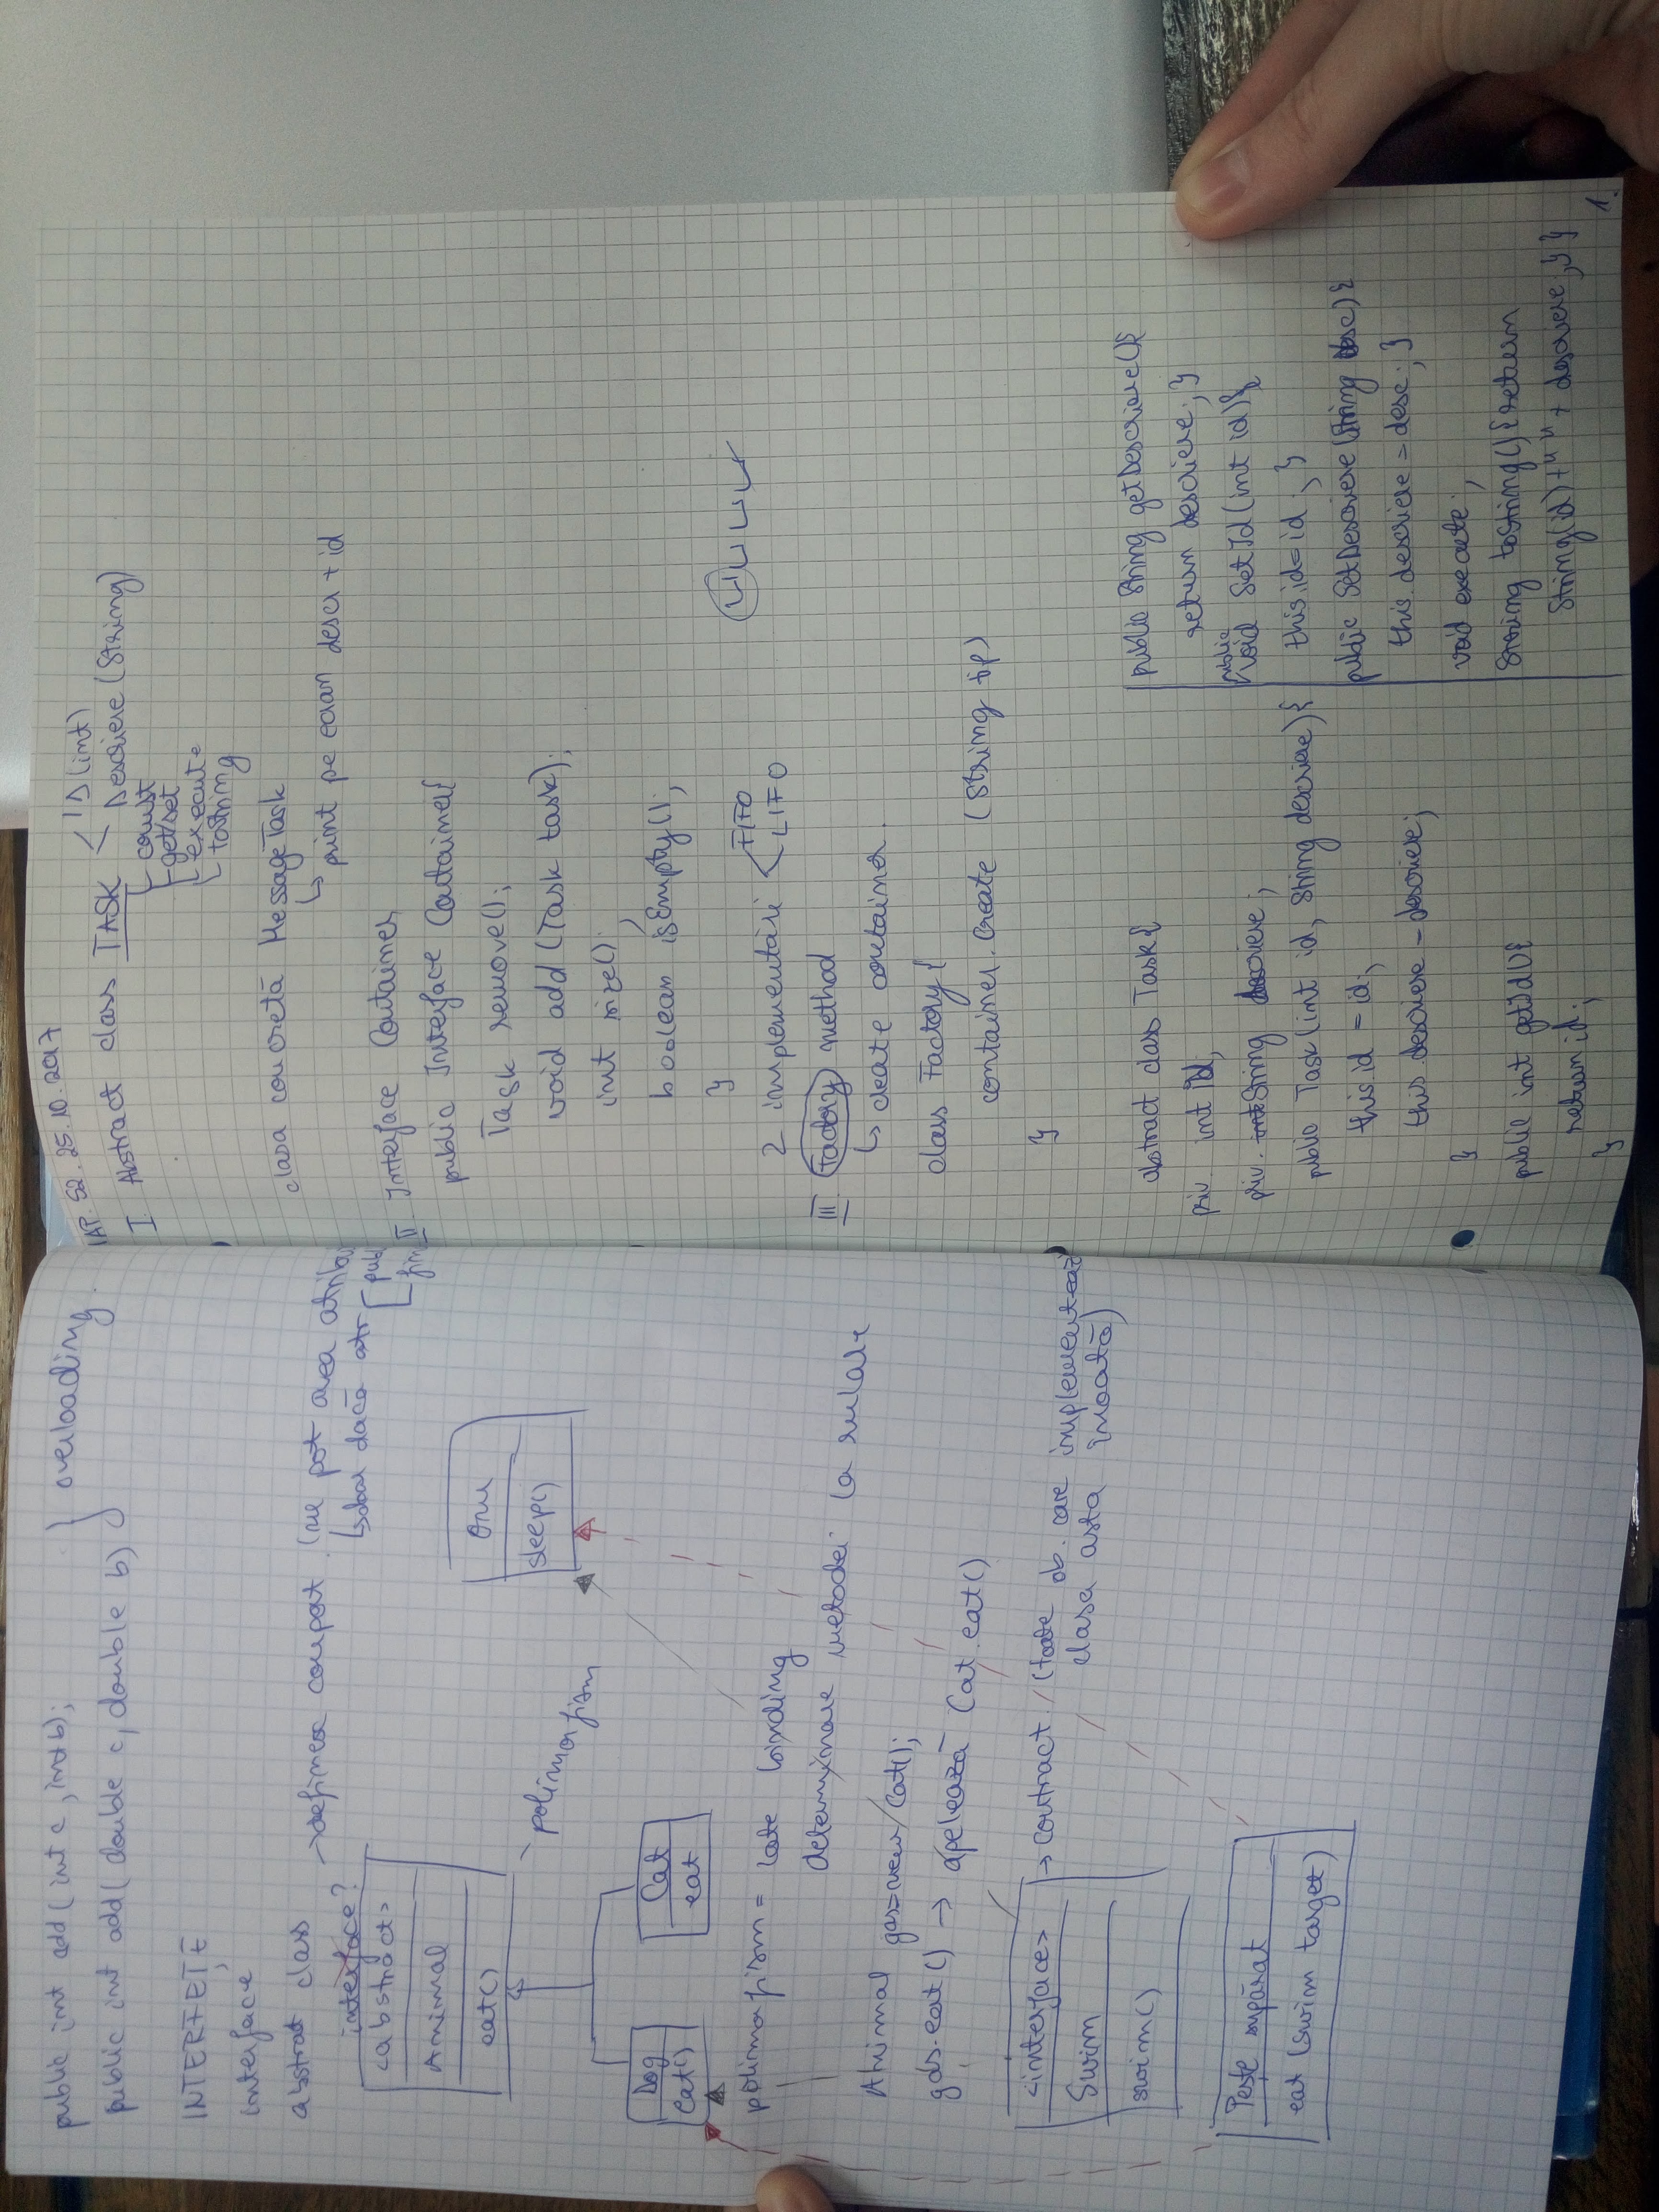 public int add( int c , int b);
public int add( double c, double b)
} overloading.
INTERFEȚE
interface
abstract class
interface?
→ definesc comport. (nu pot avea atribu
↳ doar dacă atr
publ
fin
<abstract>
Animal
eat()
polimorfism
Om
sleep()
Dog
eat()
Cat
eat
polimorfism = late binding
determinare metodei la rulare
Animal gds=new Cat();
gds.eat() → apelează Cat.eat()
<interface>
Swim
swim()
→ contract (toate ob. care implementeaz
clasa asta înoată)
Pește supărat
eat (swim target)
MAP. S2. 25.10.2017
I Abstract class TASK
ID (int)
Descriere (String)
const
get/set
execute
toString
clasa concretă MessageTask
↳ print pe ecran descr + id
II. Interface Container
public Interface Container{
Task remove();
void add (Task task);
int size();
boolean isEmpty();
}
2 implementări
FIFO
LIFO
III Factory method
↳ create container.
class Factory{
container. Create (String tip)
}
abstract class Task{
priv. int id;
priv. String descriere;
public Task(int id, String descriere){
this.id = id;
this.descriere = descriere;
}
public int getId(){
return id;
}
public String getDescriere(){
return descriere; }
public
void SetId(int id){
this.id=id; }
public SetDescriere(String desc){
this.descriere = desc; }
void execute;
String toString(){return
String(id)+" "+ descriere;} }
1.